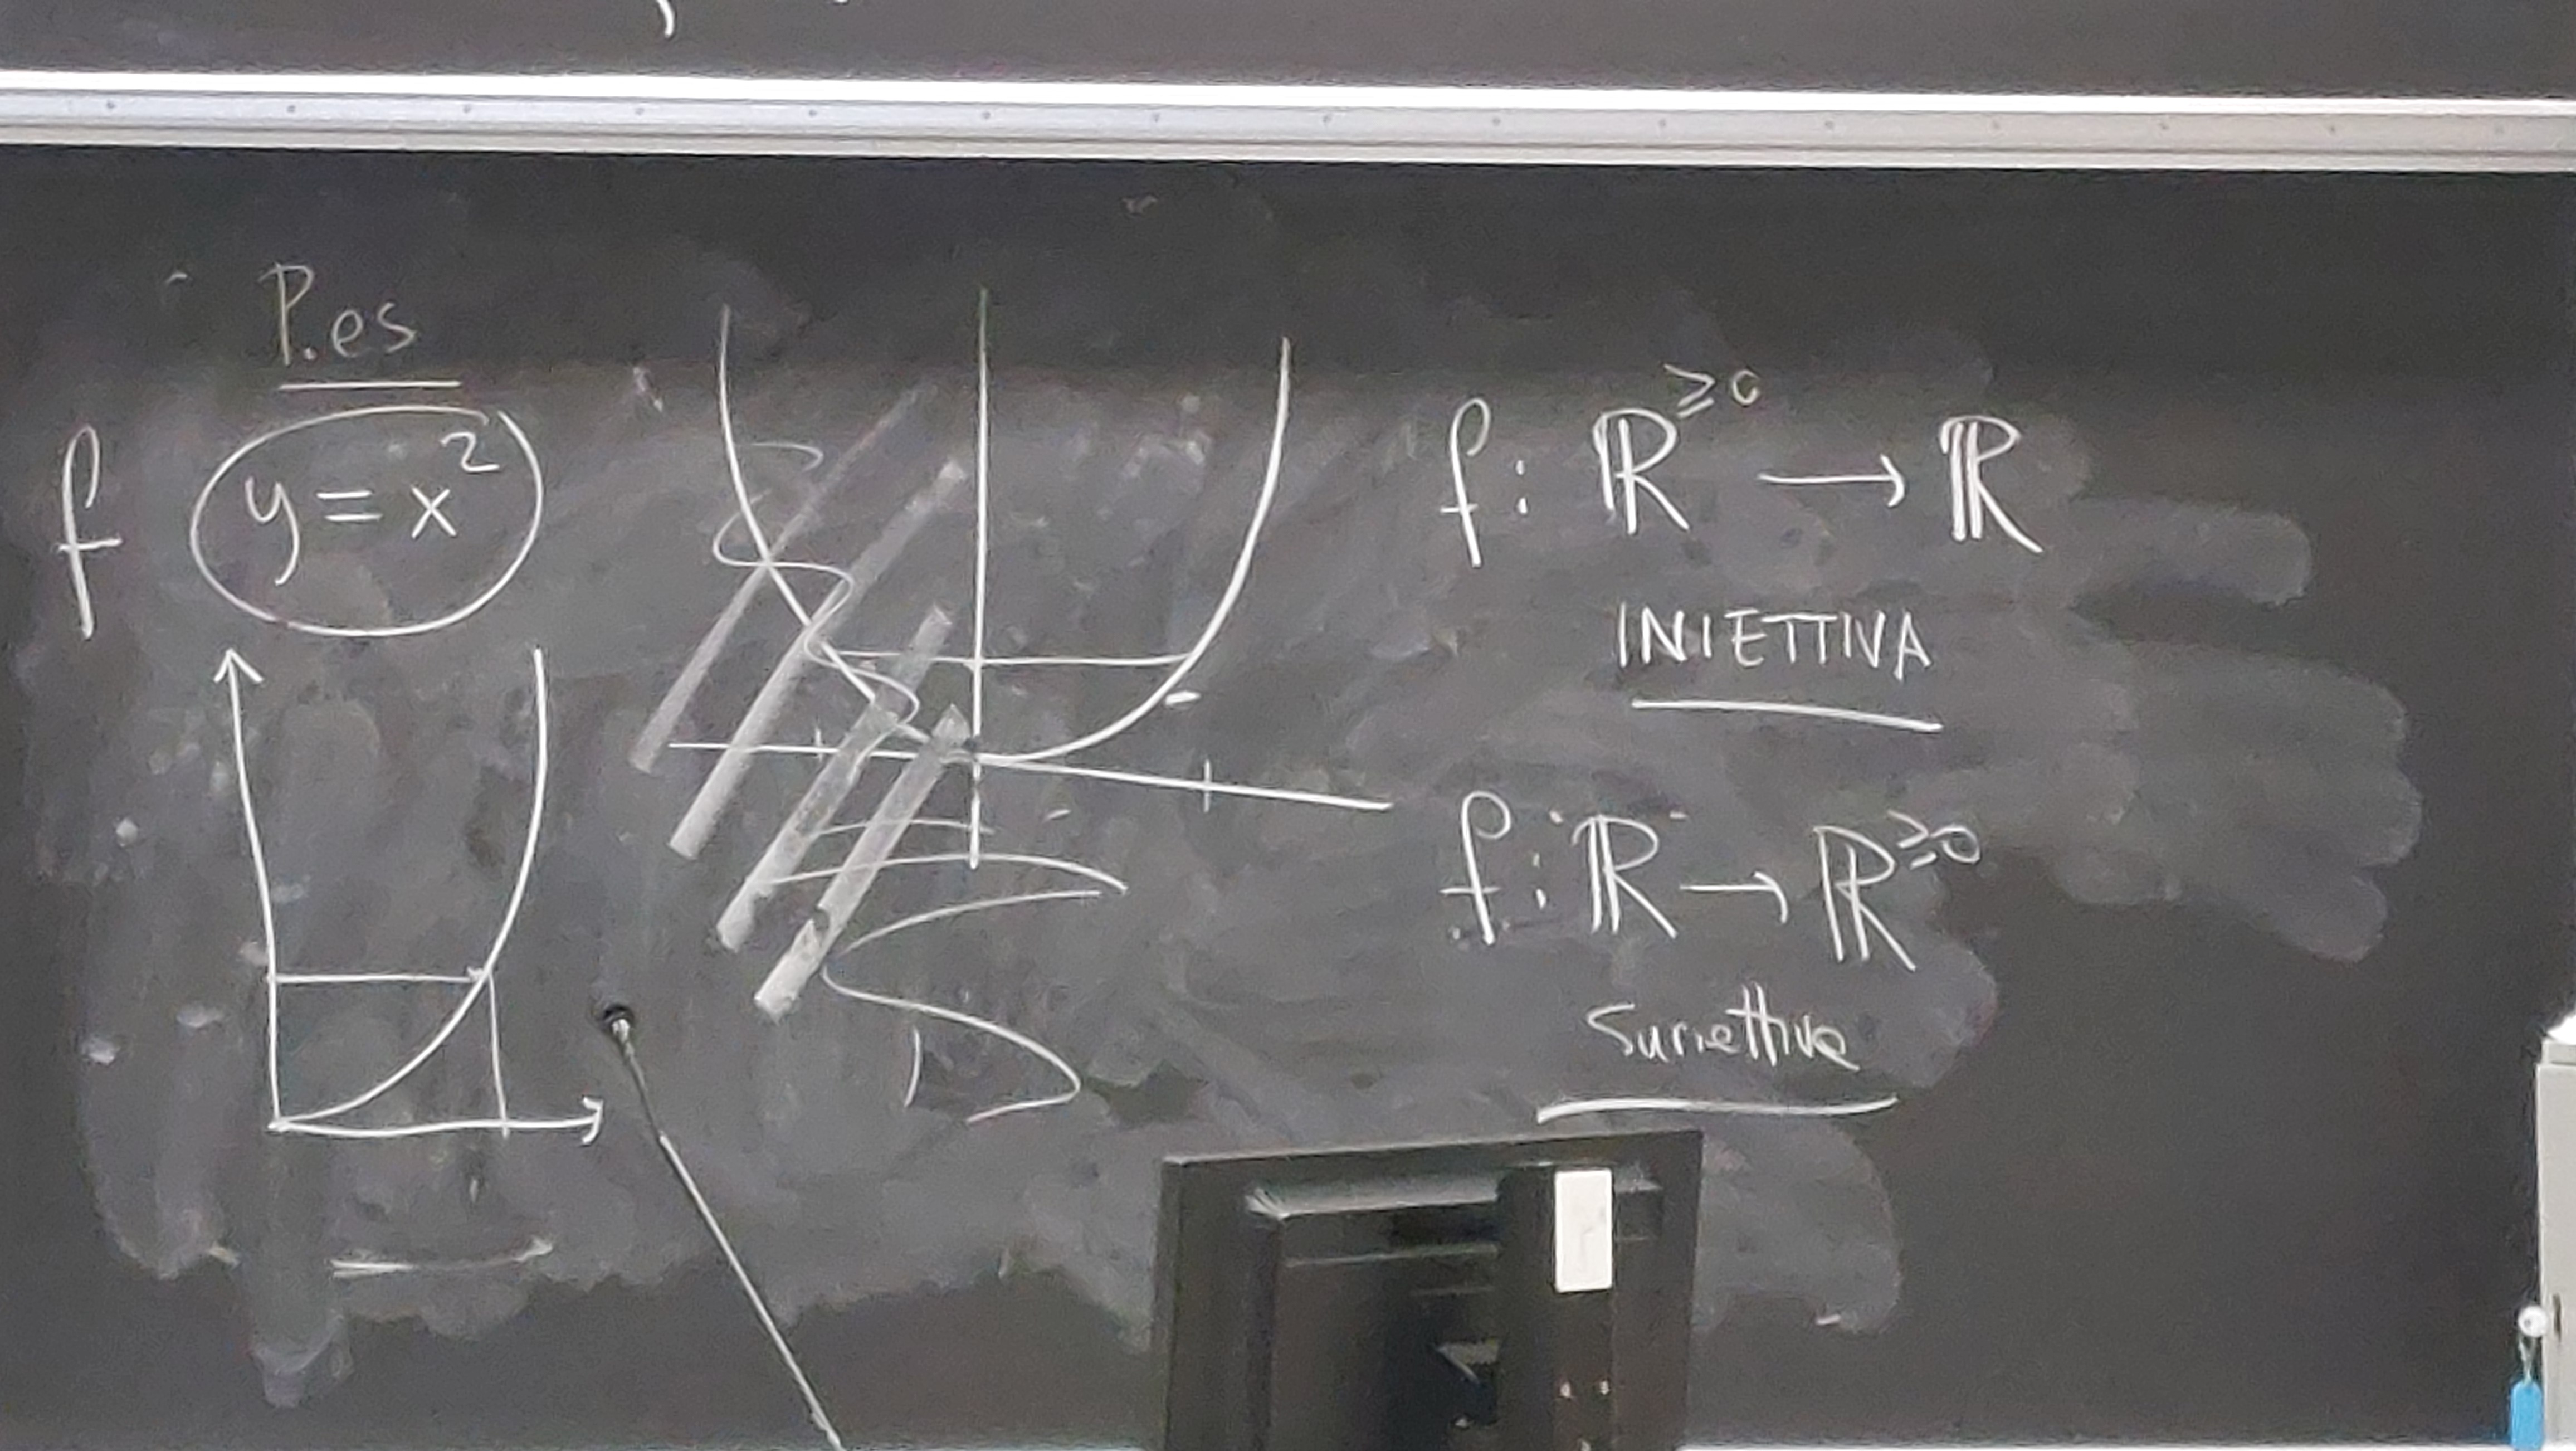 P.es
f y = x²
f: ℝ^≥0 → ℝ
INIETTIVA
f: ℝ → ℝ^≥0
Suriettiva